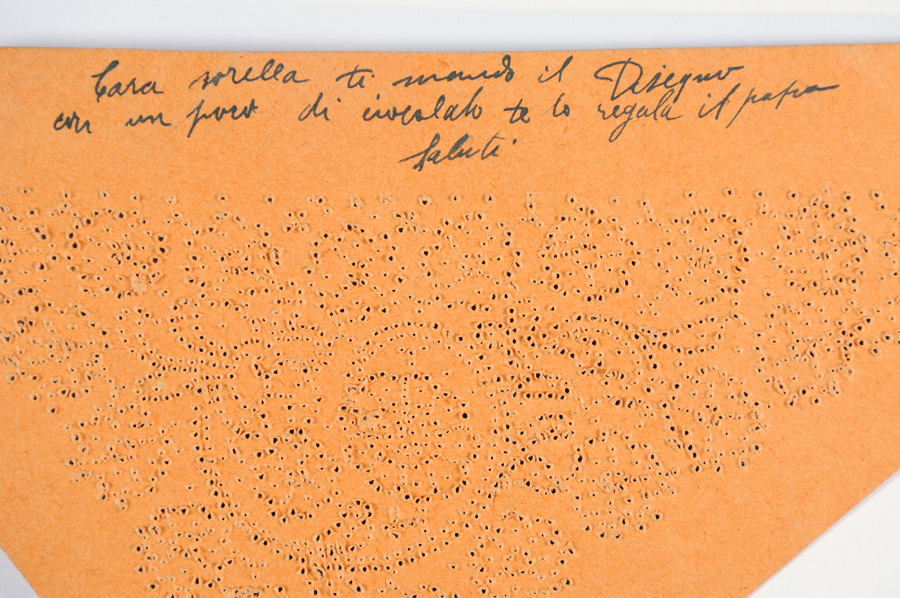 Cara sorella ti mando il Disegno
con un poco di ciocolato te lo regala il papa
Saluti